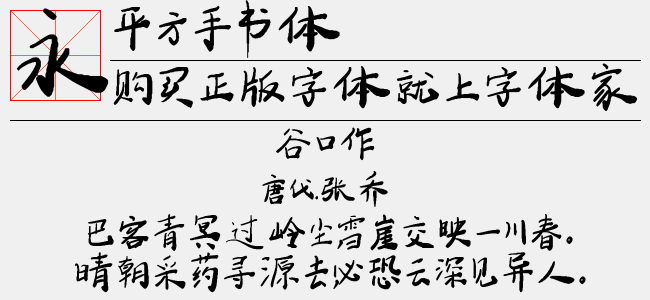 永
平方手书体
购买正版字体就上字体家
谷口作
唐代.张乔
巴客青冥过岭尘雪崖交映一川春。
晴朝采药寻源去必恐云深见异人。